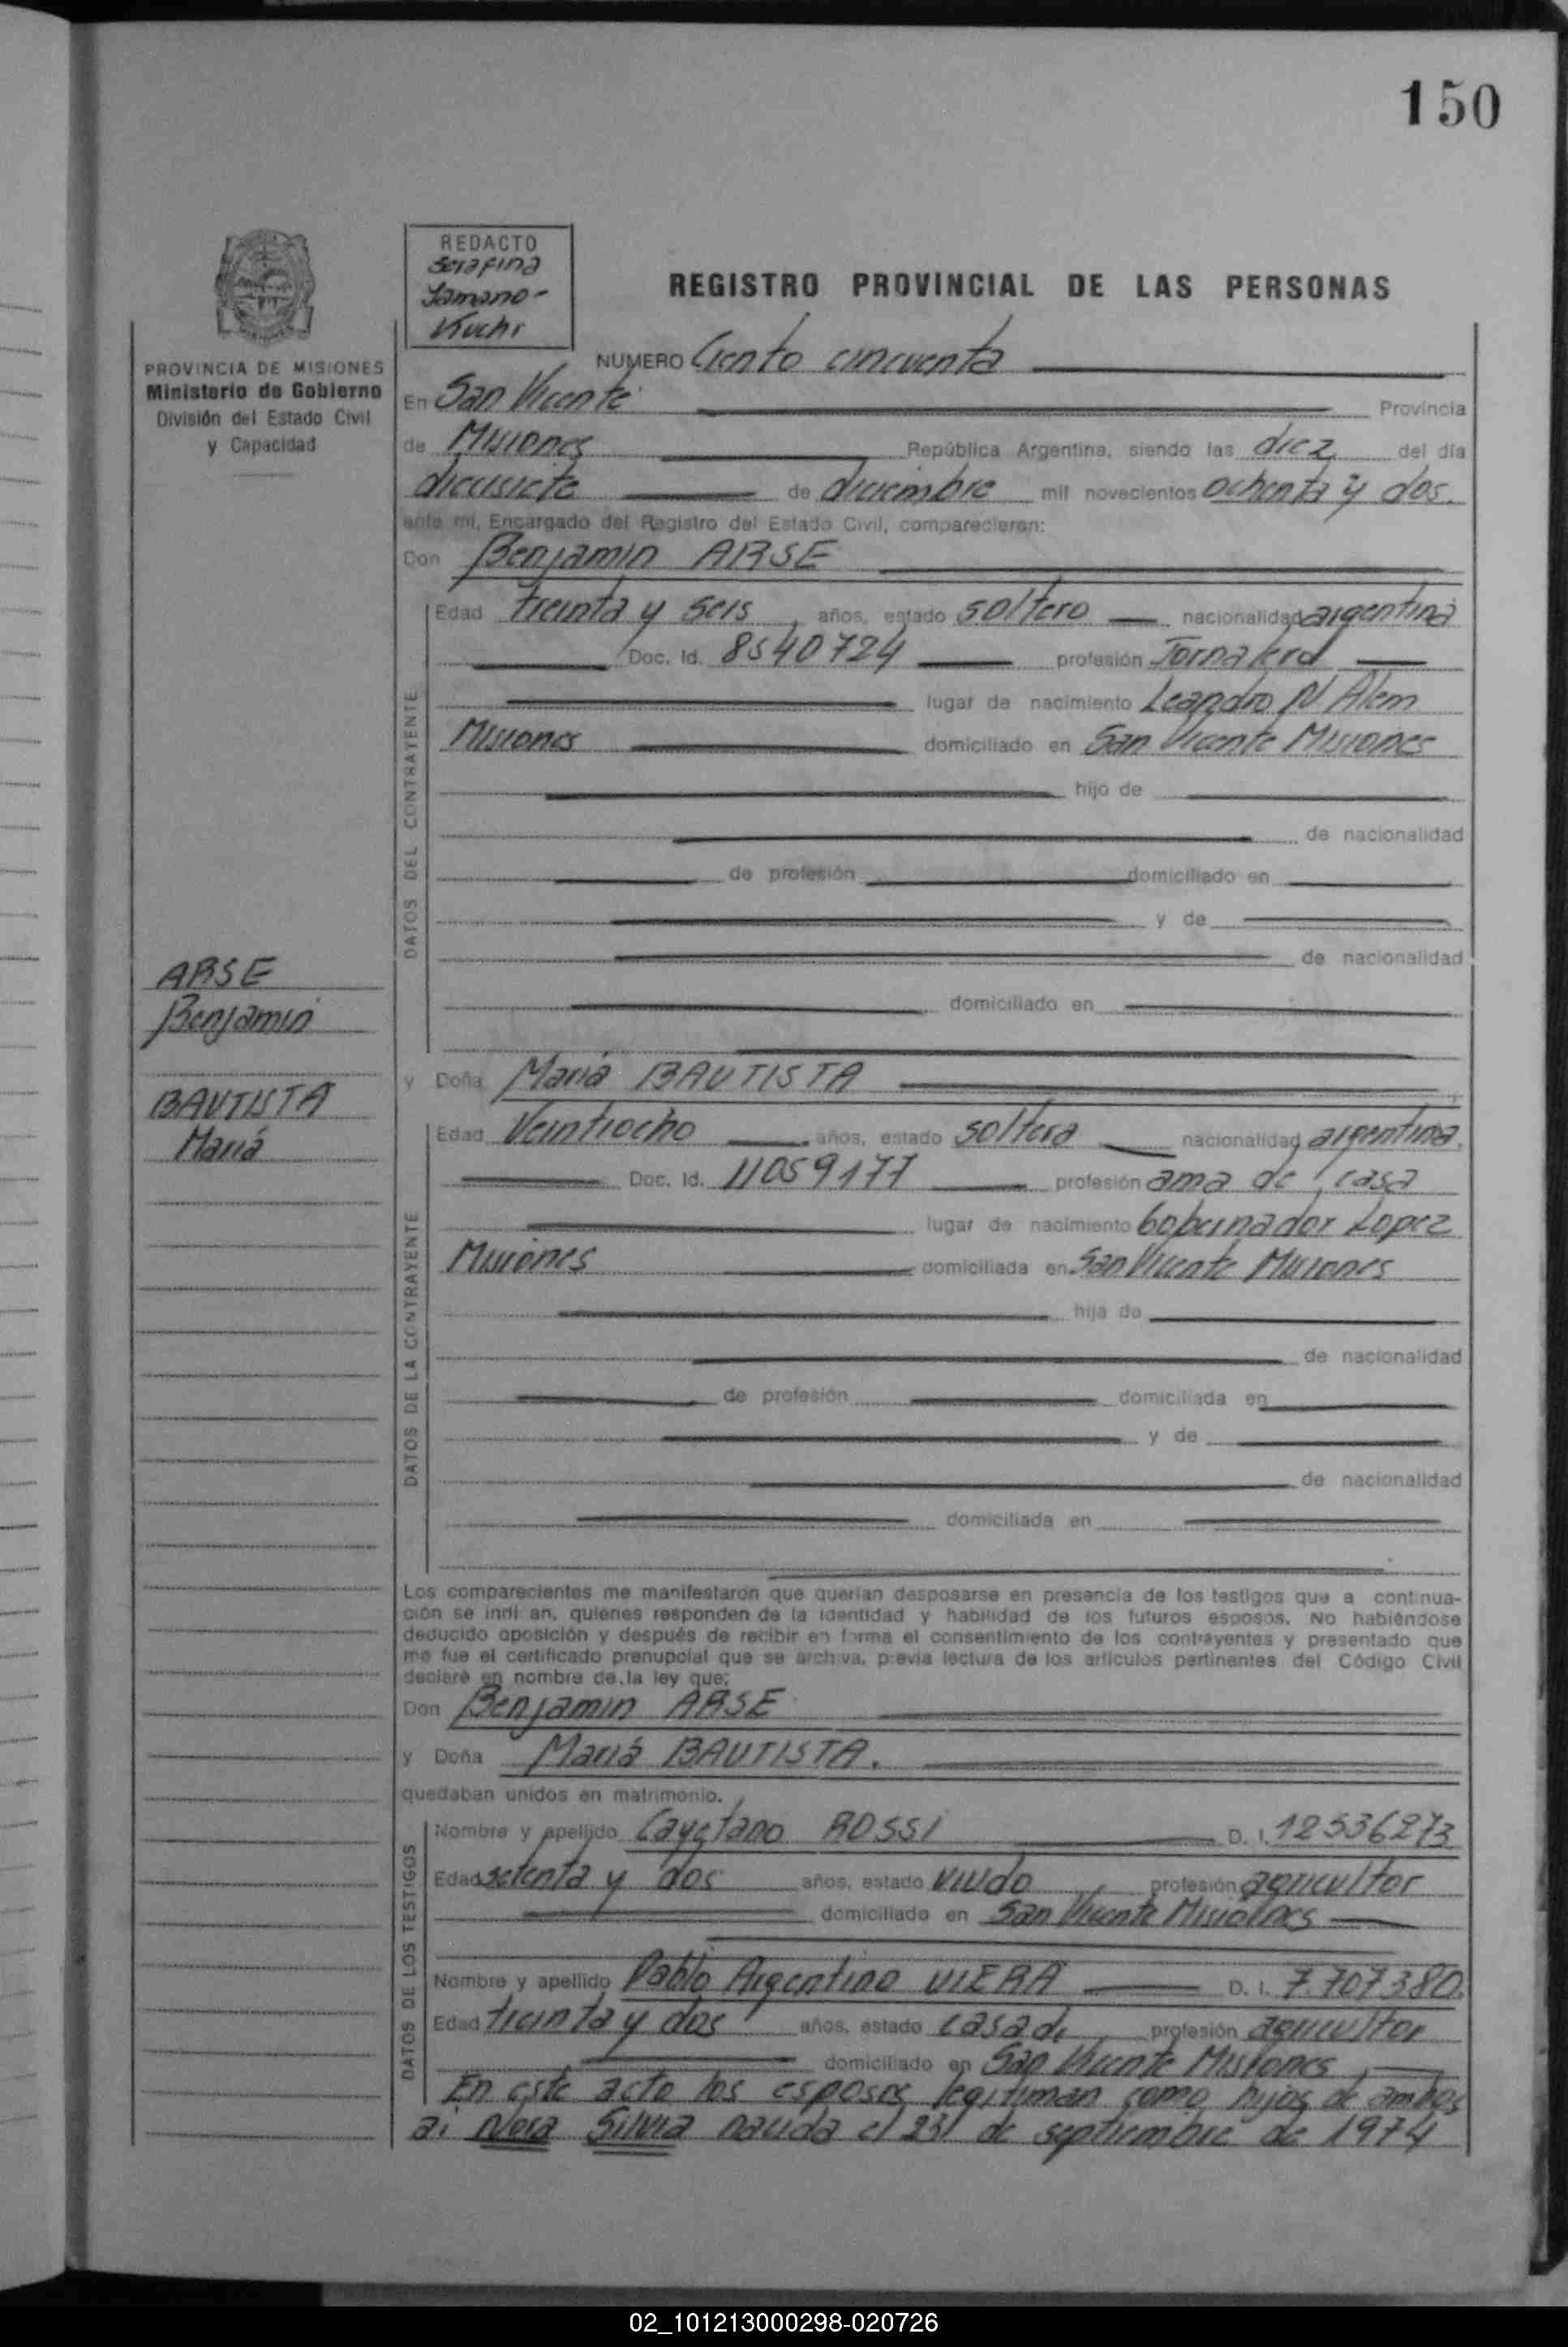 150
REDACTO
Serafina
Yamano-
Kuchi
REGISTRO PROVINCIAL DE LAS PERSONAS
PROVINCIA DE MISIONES
Ministerio de Gobierno
División del Estado Civil
y Capacidad
NUMERO Ciento cincuenta
En San Vicente Provincia
de Misiones República Argentina, siendo las diez del día
diecisiete de diciembre mil novecientos ochenta y dos.
ante mí, Encargado del Registro del Estado Civil, comparecieron:
Don Benjamin ARSE
DATOS DEL CONTRAYENTE
Edad treinta y seis años, estado soltero nacionalidad argentina
Doc. Id. 8540724 profesión Jornalero
lugar de nacimiento Leandro N Alem
Misiones domiciliado en San Vicente Misiones
hijo de
de nacionalidad
de profesión domiciliado en
y de
de nacionalidad
domiciliado en
ARSE
Benjamin
BAUTISTA
Mariá
y Doña Mariá BAUTISTA
DATOS DE LA CONTRAYENTE
Edad Veintiocho años, estado soltera nacionalidad argentina.
Doc. Id. 11059177 profesión ama de casa
lugar de nacimiento Gobernador Lopez
Misiones domiciliada en San Vicente Misiones
hija de
de nacionalidad
de profesión domiciliada en
y de
de nacionalidad
domiciliada en
Los comparecientes me manifestaron que querían desposarse en presencia de los testigos que a continua-
ción se indi an, quienes responden de la identidad y habilidad de los futuros esposos. No habiéndose
deducido oposición y después de recibir en forma el consentimiento de los contrayentes y presentado que
me fue el certificado prenupcial que se archiva, previa lectura de los artículos pertinentes del Código Civil
declaré en nombre de la ley que:
Don Benjamin ARSE
y Doña Mariá BAUTISTA.
quedaban unidos en matrimonio.
DATOS DE LOS TESTIGOS
Nombre y apellido Cayetano ROSSI D. I. 12536273
Edad setenta y dos años, estado viudo profesión agricultor
domiciliado en San Vicente Misiones
Nombre y apellido Pablo Argentino VIERA D. I. 7.707380.
Edad treinta y dos años, estado casado profesión agricultor
domiciliado en San Vicente Misiones
En este acto los esposos legitiman como hijos de ambos
a: Silvia nacida el 23 de septiembre de 1974
02_101213000298-020726